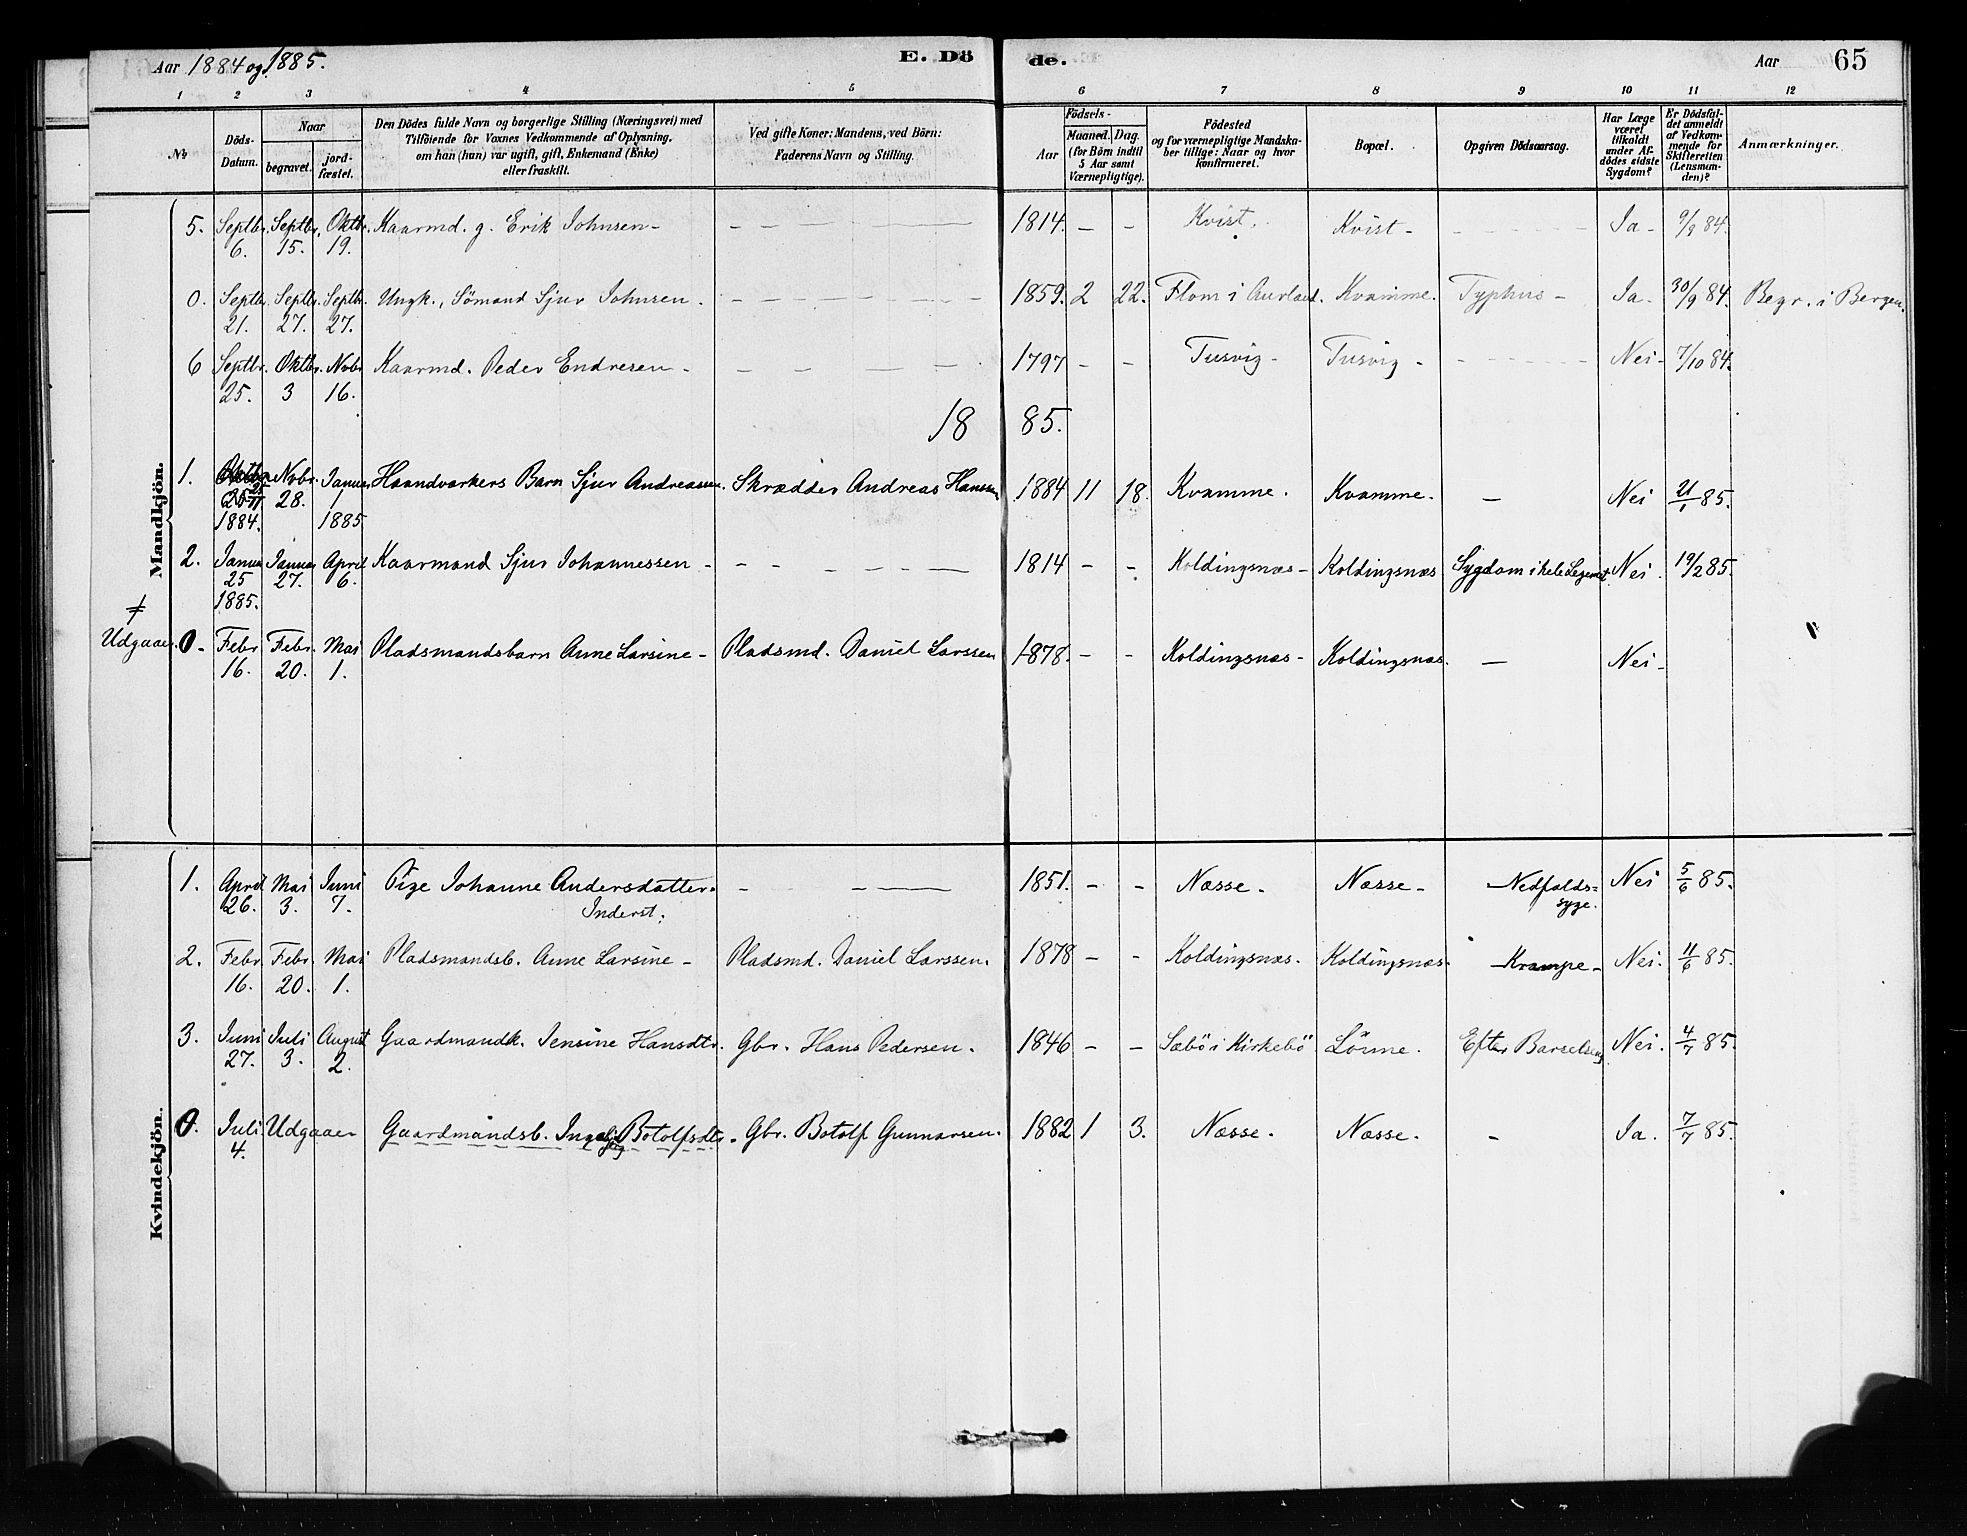 Aar 1884 og 1885. E. Dö de. Aar 65
1 2 3 4 5 6 7 8 9 10 11 12
No Döds-Datum. Naar begravet. jord-fæstet. Den Dödes fulde Navn og borgerlige Stilling (Næringsvei) med Tilföiende for Voxnes Vedkommende af Oplysning. om han (hun) var ugift, gift, Enkemand (Enke) eller fraskilt. Ved gifte Koner: Mandens, ved Börn: Faderens Navn og Stilling. Födsels- Aar Maaned. Dag. (for Börn indtil 5 Aar samt Værnepligtige). Födested og for værnepligtige Mandska-ber tillige: Naar og hvor konfirmeret. Bopæl. Opgiven Dödsaarsag. Har Læge været tilkaldt under Af-dödes sidste Sygdom? Er Dödsfal-det anmeldt af Vedkom-mende for Skifteretten (Lensman-den)? Anmærkninger.
Mandkjön.
5. Septbr. Septbr. Oktbr. Kaarmd. g. Erik Johnsen - 1814. - - Kvist. Kvist - Ja - 9/9 84.
6. 15. 19.
0. Septbr. Septbr. Septbr. Ungk., Sömand Sjur Johnsen. 1859. 2 22. Flom i Aurland. Kvamme. Typhus - Ja - 30/9 84. Begr. i Bergen.
21. 27. 27.
6 Septbr. Oktbr. Novbr Kaarmd. Peder Endresen - 1797 - - Tusvig - Tusvig - Nei - 7/10 84.
25. 3 16.
18 85.
1. Novbr. Januar Haandværkers Barn Sjur Andreassen. Skrædder Andreas Hanssen 1884 11 18. Kvamme. Kvamme. - Nei 21/1 85.
28. 1
1884. 1885
2. Januar Januar April Kaarmand Sjur Johannessen - 1814 - - Koldingsnæs - Koldingsnæs Sygdom i hele Legemet. Nei. 19/2 85.
25 27. 6.
1885.
Udgaaer. 0 - Febr. Febr. Mai Pladsmandsbarn Anne Larsine - Pladsmd. Daniel Larssen 1878. - - Koldingsnæs - Koldingsnæs. - Nei -
16. 20. 1.
Kvindekjön.
1. April Mai Juni Pige Johanne Andersdatter. 1851. - - Næsse - Næsse - Nedfalds= Nei 5/6 85.
26. 3. 7. Inderst. syge.
2. Febr. Febr. Mai Pladsmandsb. Anne Larsine - Pladsmd. Daniel Larssen. 1878 - - Koldingsnæs. Koldingsnæs - Krampe - Nei. 11/6 85.
16. 20. 1.
3. Juni Juli August Gaardmandk. Jensine Hansdtr. Gbr. Hans Pedersen. 1846 - - Sæbö i Kirkebö Lönne. Efter Barselseng Nei. 4/7 85.
27. 3. 2.
0. Juli Udgaaer Gaardmandsb. Botolfsdtr. Gbr. Botolf Gunnarsen. 1882 1 3. Næsse. Næsse. - Ja. 7/7 85.
4.